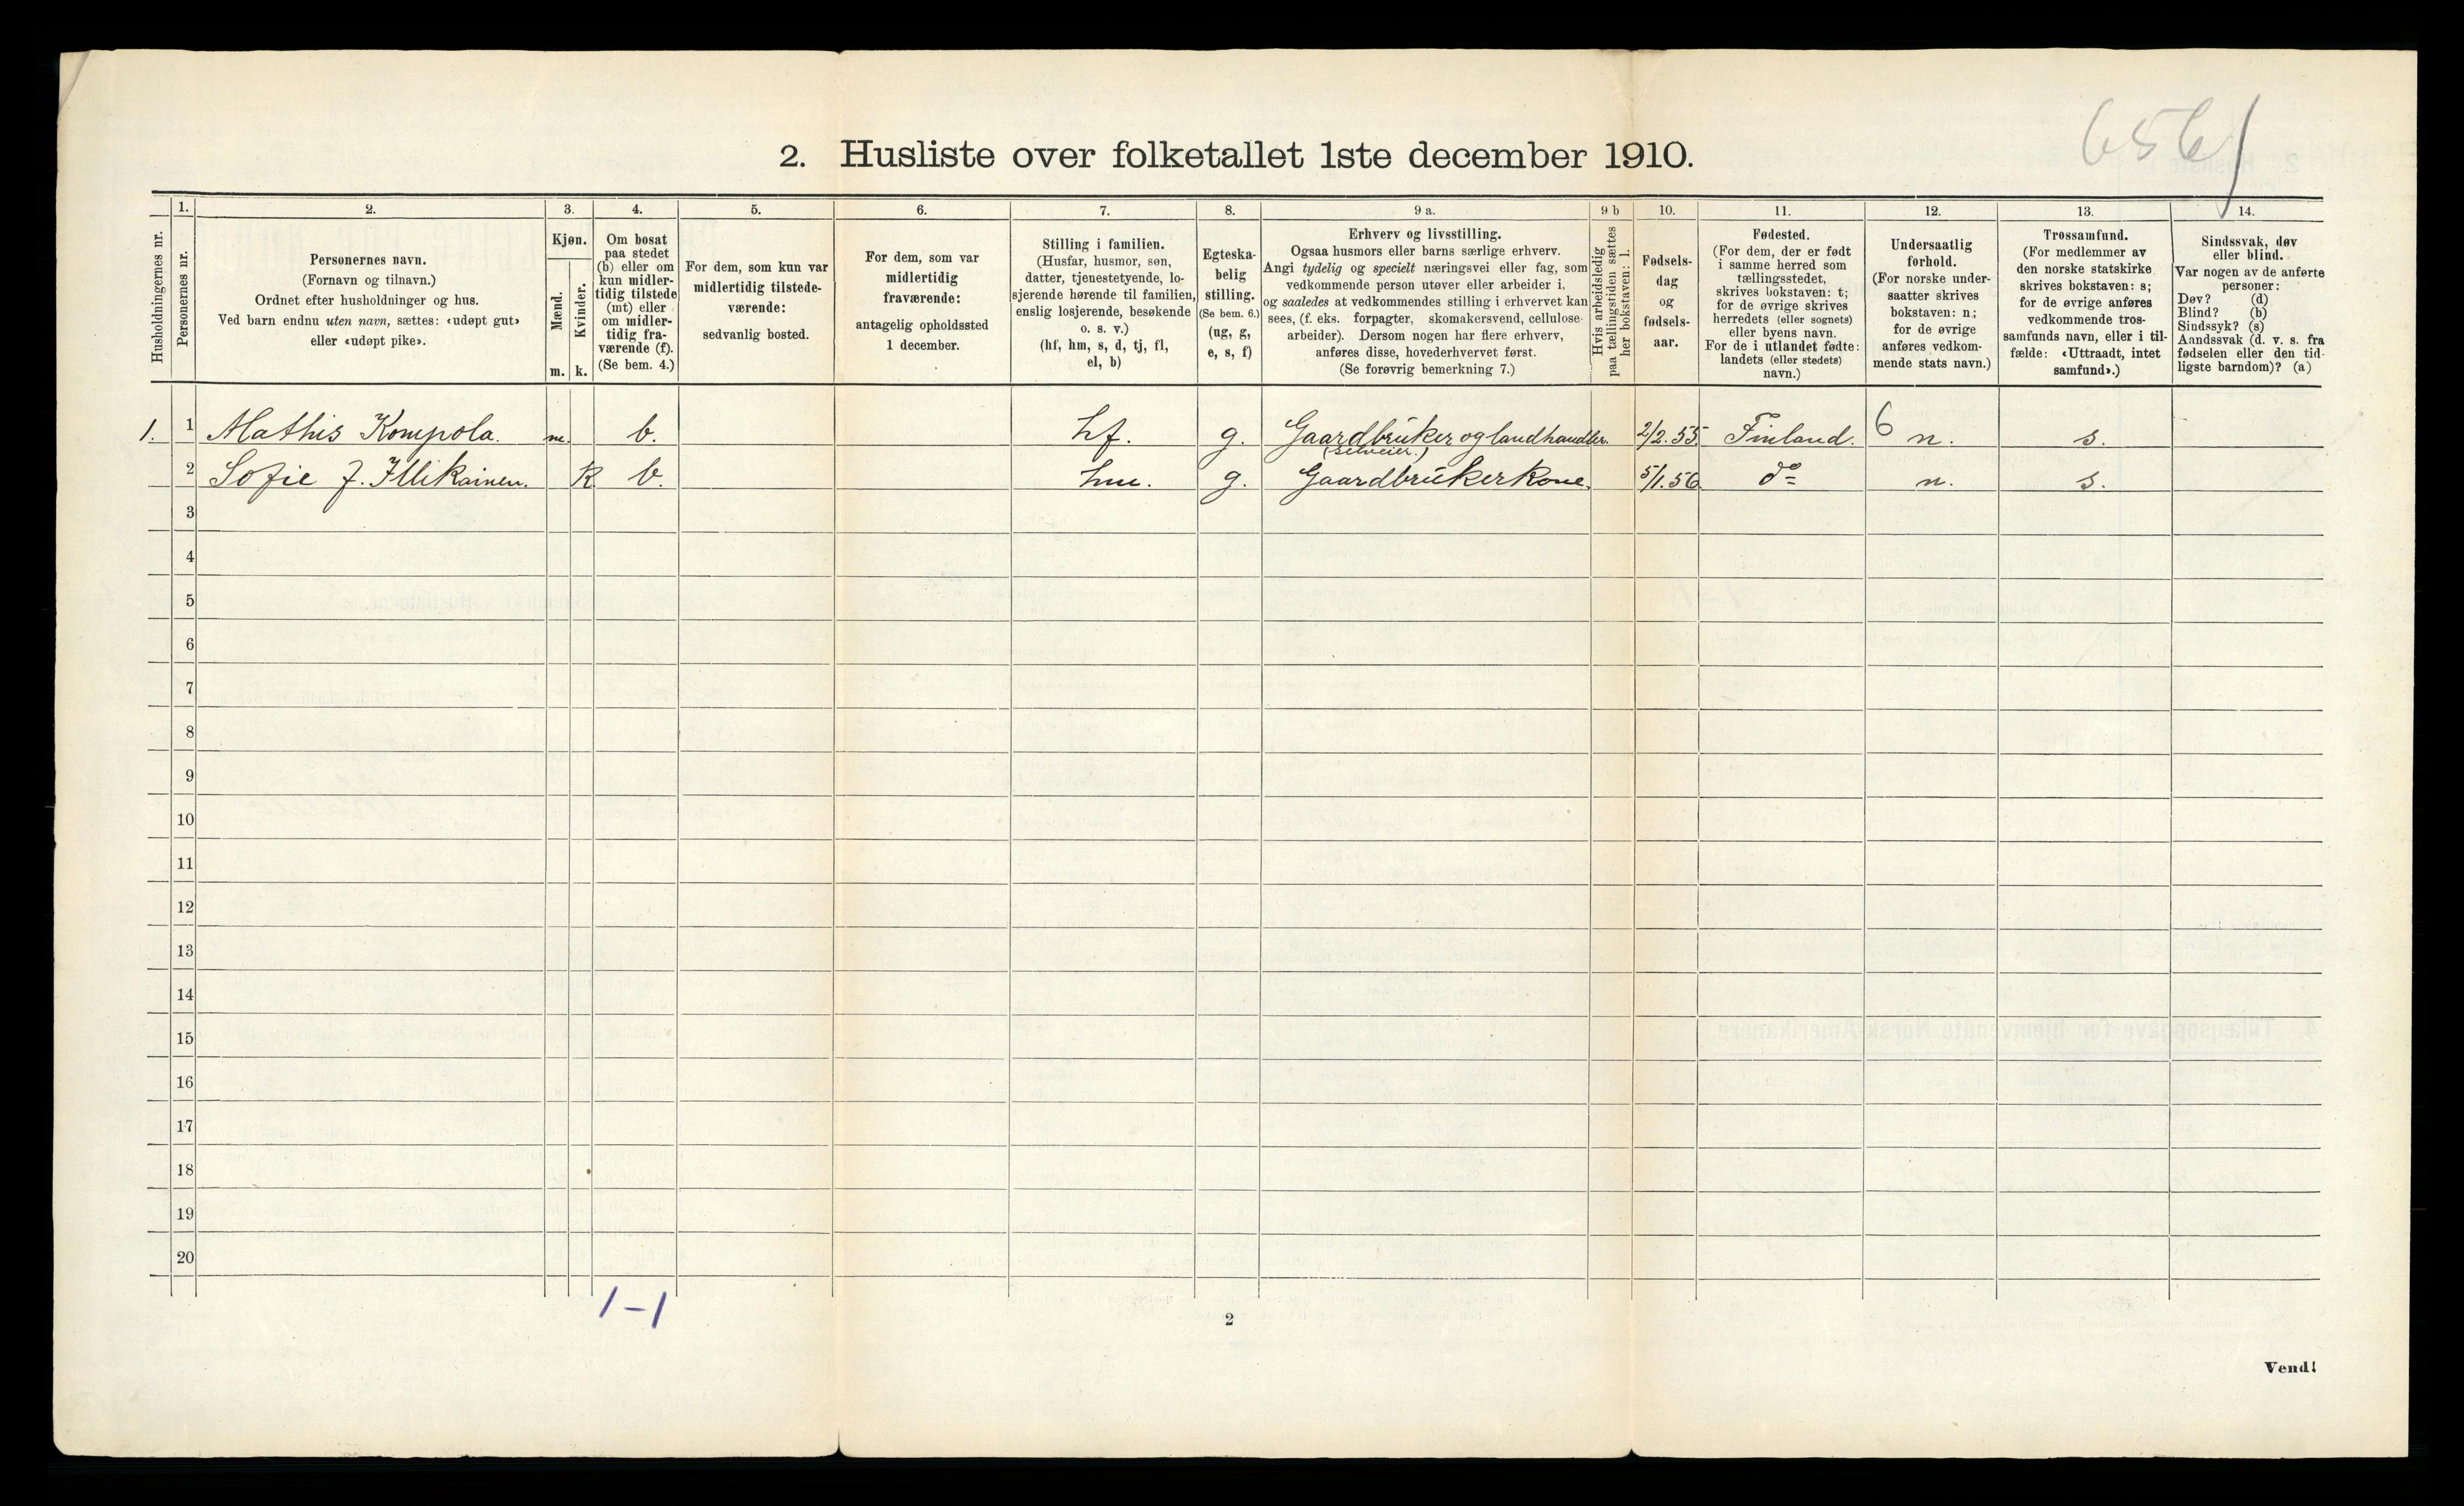 656/
2. Husliste over folketallet 1ste december 1910.
Husholdningernes nr.
1.
Personernes nr.
2.
Personernes navn.
(Fornavn og tilnavn.)
Ordnet efter husholdninger og hus.
Ved barn endnu uten navn, sættes: «udøpt gut»
eller «udøpt pike».
3.
Kjøn.
Mænd.
Kvinder.
m. k.
4.
Om bosat
paa stedet
(b) eller om
kun midler-
tidig tilstede
(mt) eller
om midler-
tidig fra-
værende (f).
(Se bem. 4.)
5.
For dem, som kun var
midlertidig tilstede-
værende:
sedvanlig bosted.
6.
For dem, som var
midlertidig
fraværende:
antagelig opholdssted
1 december.
7.
Stilling i familien.
(Husfar, husmor, søn,
datter, tjenestetyende, lo-
sjerende hørende til familien,
enslig losjerende, besøkende
o. s. v.)
(hf, hm, s, d, tj, fl,
el, b)
8.
Egteska-
belig
stilling.
(Se bem. 6.)
(ug, g,
e, s, f)
9 a.
Erhverv og livsstilling.
Ogsaa husmors eller barns særlige erhverv.
Angi tydelig og specielt næringsvei eller fag, som
vedkommende person utøver eller arbeider i,
og saaledes at vedkommendes stilling i erhvervet kan
sees, (f. eks. forpagter, skomakersvend, cellulose-
arbeider). Dersom nogen har flere erhverv,
anføres disse, hovederhvervet først.
(Se forøvrig bemerkning 7.)
9 b
Hvis arbeidsledig
paa tællingstiden sættes
her bokstaven: l.
10.
Fødsels-
dag
og
fødsels-
aar.
11.
Fødested.
(For dem, der er født
i samme herred som
tællingsstedet,
skrives bokstaven: t;
for de øvrige skrives
herredets (eller sognets)
eller byens navn.
For de i utlandet fødte:
landets (eller stedets)
navn.)
12.
Undersaatlig
forhold.
(For norske under-
saatter skrives
bokstaven: n;
for de øvrige
anføres vedkom-
mende stats navn.)
13.
Trossamfund.
(For medlemmer av
den norske statskirke
skrives bokstaven: s;
for de øvrige anføres
vedkommende tros-
samfunds navn, eller i til-
fælde: «Uttraadt, intet
samfund».)
14.
Sindssvak, døv
eller blind.
Var nogen av de anførte
personer:
Døv? (d)
Blind? (b)
Sindssyk? (s)
Aandssvak (d. v. s. fra
fødselen eller den tid-
ligste barndom)? (a)
1. 1 Mathis Kompola. m. b. hf. g. Gaardbruker og landhandler. 2/2.55 Finland. 6 n. s.
(selveier.)
2 Sofie J. Illikainen. k b. hm. g. Gaardbrukerkone. 5/1.56. do n. s.
3
4
5
6
7
8
9
10
11
12
13
14
15
16
17
18
19
20
1-1
2
Vend!